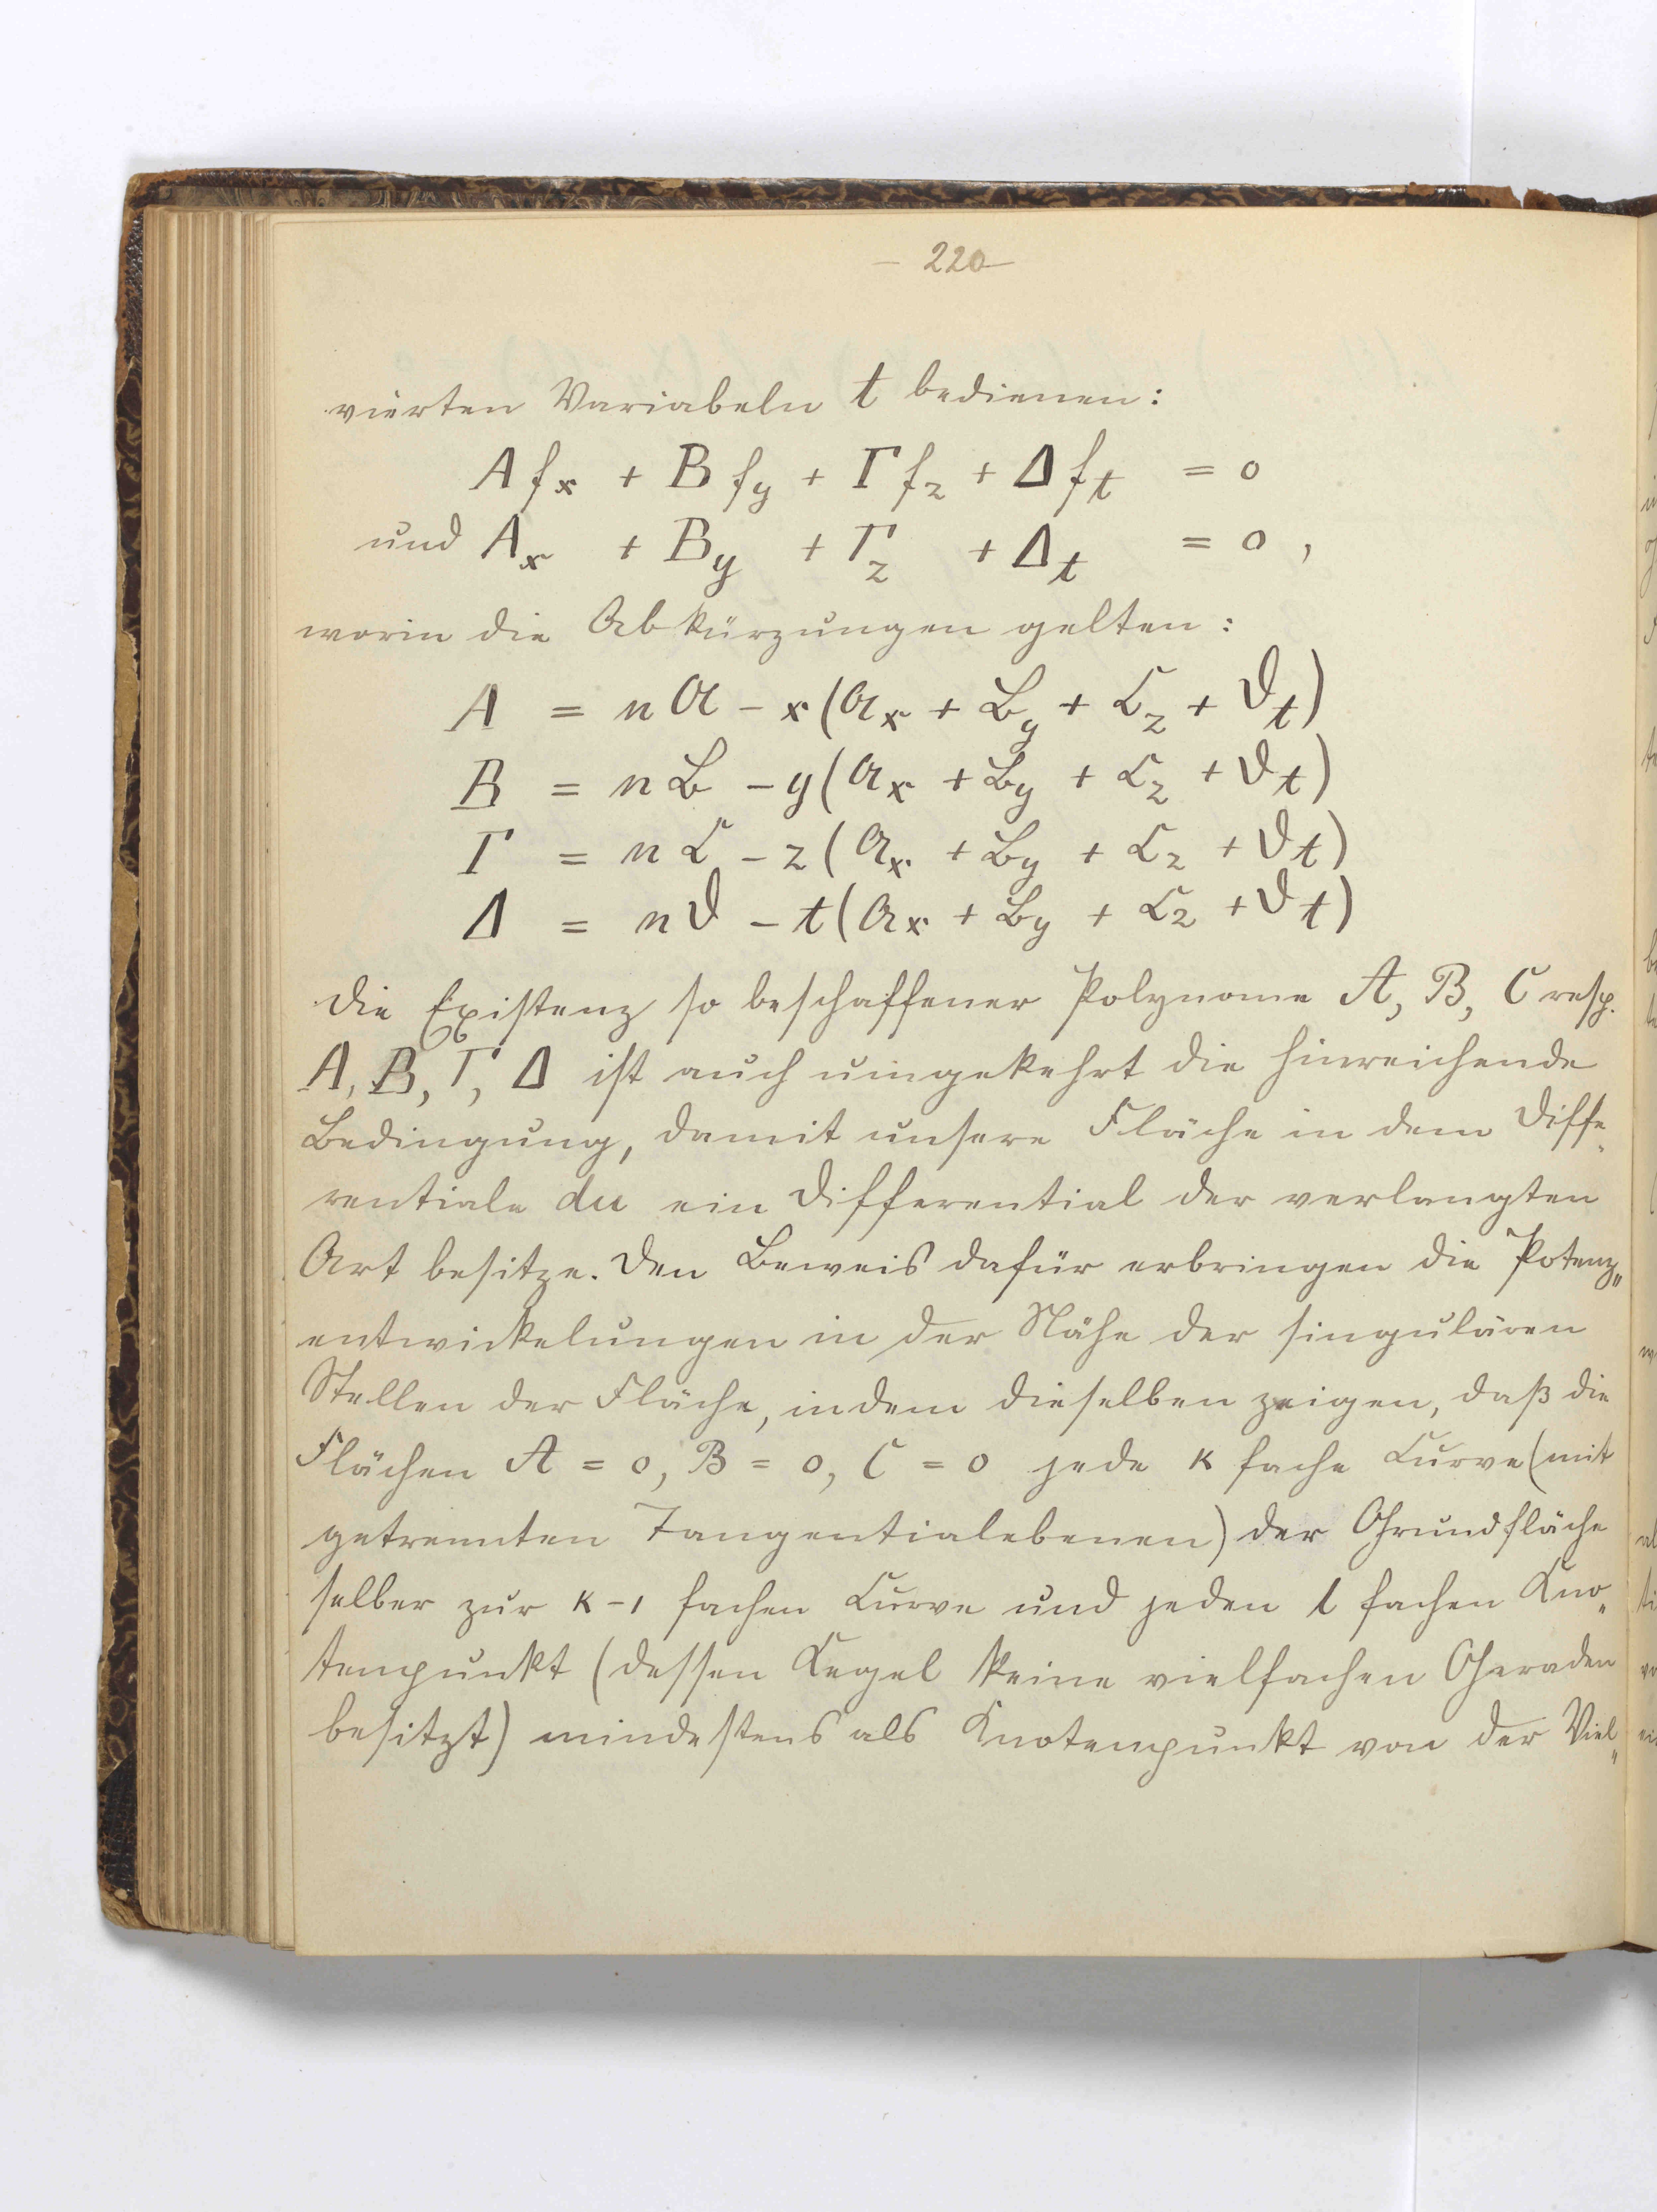 – 220 –
vierten Variabeln t bedienen:
A fx + B fy + Γ fz + Δ ft = 0
und Ax + By + Γz + Δt = 0,
worin die Abkürzungen gelten:
A = n𝔄 – x(𝔄x + 𝔅y + ℭz + 𝔇t)
B = n𝔅 – y(𝔄x + 𝔅y + ℭz + 𝔇t)
Γ = nℭ – z(𝔄x + 𝔅y + ℭz + 𝔇t)
Δ = n𝔇 – t(𝔄x + 𝔅y + ℭz + 𝔇t)
Die Existenz so beschaffener Polynome A, B, C resp.
A, B, Γ, Δ ist auch umgekehrt die hinreichende
Bedingung, damit unsere Fläche in dem Diffe„
rentiale du ein Differential der verlangten
Art besitze. Den Beweis dafür erbringen die Potenz„
entwickelungen in der Nähe der singulären
Stellen der Fläche, indem dieselben zeigen, daß die
Flächen A = 0, B = 0, C = 0 jede κ fache Curve (mit
getrennten Tangentialebenen) der Grundfläche
selber zur κ–1 fachen Curve und jeden l fachen Kno„
tenpunkt (dessen Kegel keine vielfachen Geraden
besitzt) mindestens als Knotenpunkt von der Viel„